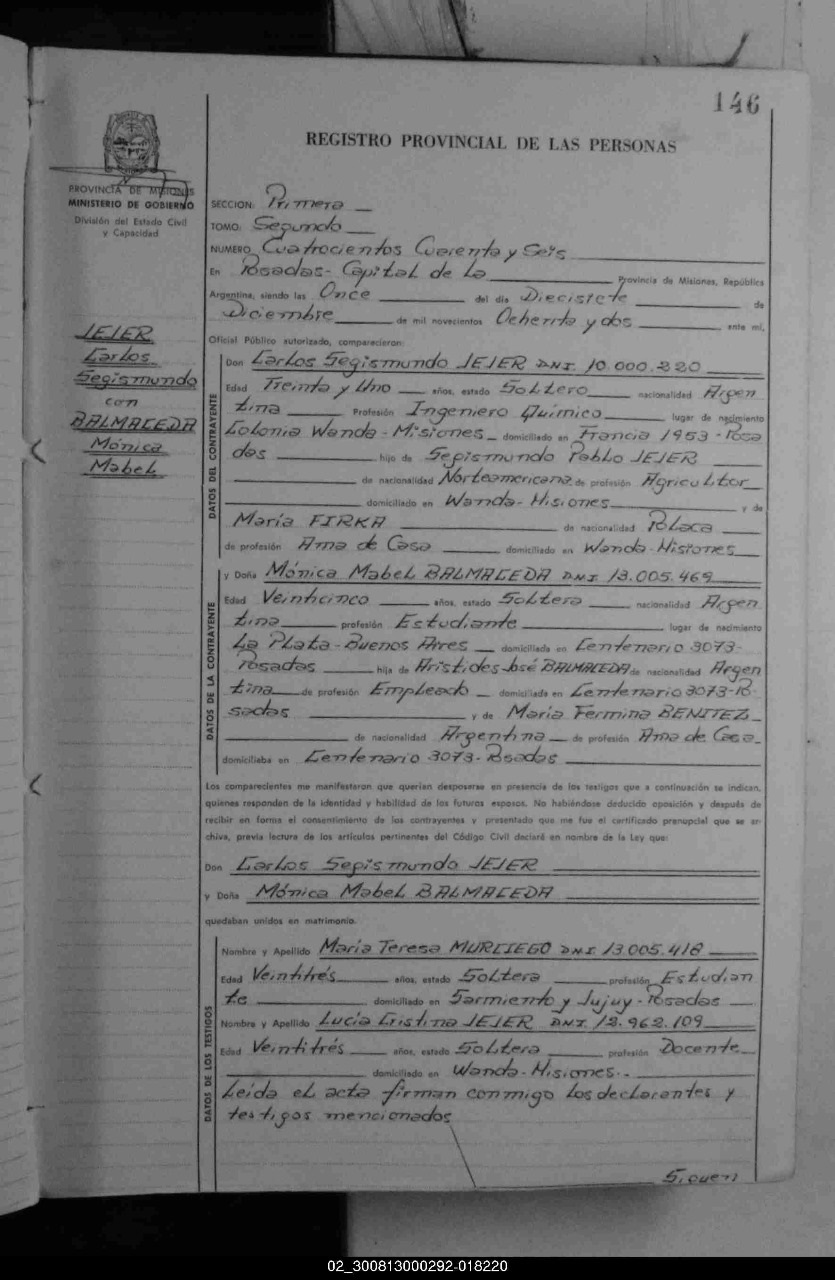 146
REGISTRO PROVINCIAL DE LAS PERSONAS
PROVINCIA DE MISIONES
MINISTERIO DE GOBIERNO
División del Estado Civil
y Capacidad
JEJER
Carlos
Segismundo
con
BALMACEDA
Mónica
Mabel
SECCION: Primera
TOMO: Segundo
NUMERO Cuatrocientos Cuarenta y Seis
En Posadas - Capital de La Provincia de Misiones, República
Argentina, siendo las Once del día Diecisiete de
Diciembre de mil novecientos Ochenta y dos ante mí,
Oficial Público autorizado, comparecieron:
DATOS DEL CONTRAYENTE
Don Carlos Segismundo JEJER DNI. 10.000.320
Edad Treinta y Uno años, estado Soltero nacionalidad Argen
tina Profesión Ingeniero Químico lugar de nacimiento
Colonia Wanda - Misiones domiciliado en Francia 1953 - Posa
das hijo de Segismundo Pablo JEJER
de nacionalidad Norteamericana de profesión Agricultor
domiciliado en Wanda - Misiones y de
María FIRKA de nacionalidad Polaca
de profesión Ama de Casa domiciliado en Wanda - Misiones
DATOS DE LA CONTRAYENTE
y Doña Mónica Mabel BALMACEDA DNI. 13.005.469
Edad Veinticinco años, estado Soltera nacionalidad Argen
tina profesión Estudiante lugar de nacimiento
La Plata - Buenos Aires domiciliada en Centenario 3073 -
Posadas hija de Arístides José BALMACEDA de nacionalidad Argen
tina de profesión Empleado domiciliado en Centenario 3073 - Po
sadas y de María Fermina BENITEZ
de nacionalidad Argentina de profesión Ama de Casa
domiciliaba en Centenario 3073 - Posadas
Los comparecientes me manifestaron que querían desposarse en presencia de los testigos que a continuación se indican,
quienes responden de la identidad y habilidad de los futuros esposos. No habiéndose deducido oposición y después de
recibir en forma el consentimiento de los contrayentes y presentado que me fue el certificado prenupcial que se ar
chiva, previa lectura de los artículos pertinentes del Código Civil declaré en nombre de la Ley que:
Don Carlos Segismundo JEJER
y Doña Mónica Mabel BALMACEDA
quedaban unidos en matrimonio.
DATOS DE LOS TESTIGOS
Nombre y Apellido María Teresa MURCIEGO DNI. 13.005.418
Edad Veintitrés años, estado Soltera profesión Estudian
te domiciliado en Sarmiento y Jujuy - Posadas
Nombre y Apellido Lucía Cristina JEJER DNI. 12.962.109
Edad Veintitrés años, estado Soltera profesión Docente
domiciliado en Wanda - Misiones.
Leída el acta firman conmigo los declarantes y
testigos mencionados
Siguen
02_300813000292-018220